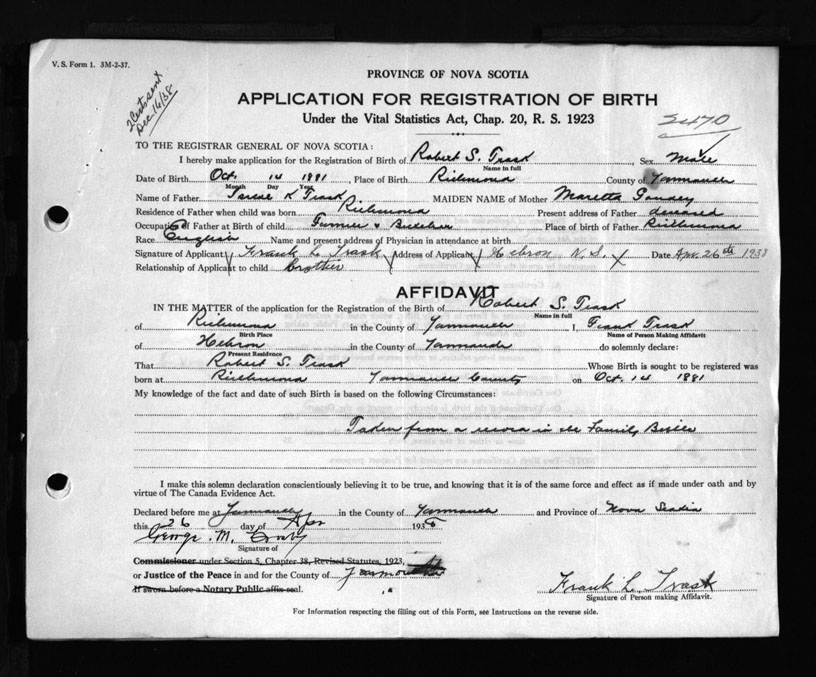 V. S. Form 1. 3M-2-37.
2 Certs sent
Dec 16/38
PROVINCE OF NOVA SCOTIA
APPLICATION FOR REGISTRATION OF BIRTH
Under the Vital Statistics Act, Chap. 20, R. S. 1923
TO THE REGISTRAR GENERAL OF NOVA SCOTIA:
I hereby make application for the Registration of Birth of Robert S. Trask, Sex Male
Name in full
Date of Birth Oct. 14 1881, Place of Birth Richmond County of Yarmouth
Month Day Year
Name of Father K Trask MAIDEN NAME of Mother Maretta
Residence of Father when child was born Richmond Present address of Father deceased
Occupation of Father at Birth of child Farmer & Butcher Place of birth of Father Richmond
Race English Name and present address of Physician in attendance at birth
Signature of Applicant Frank L. Trask Address of Applicant Hebron N.S. Date Apr. 26th 1938
Relationship of Applicant to child brother
AFFIDAVIT
IN THE MATTER of the application for the Registration of the Birth of Robert S. Trask
Name in full
of Richmond in the County of Yarmouth I, Frank Trask
Birth Place Name of Person Making Affidavit
of Hebron in the County of Yarmouth do solemnly declare:
Present Residence
That Robert S. Trask Whose Birth is sought to be registered was
born at Richmond Yarmouth County on Oct. 14 1881
My knowledge of the fact and date of such Birth is based on the following Circumstances:
Taken from a record in the Family Bible
I make this solemn declaration conscientiously believing it to be true, and knowing that it is of the same force and effect as if made under oath and by
virtue of The Canada Evidence Act.
Declared before me at Yarmouth in the County of Yarmouth and Province of Nova Scotia
this 26 day of Apr 1938
George M.
Signature of
Commissioner under Section 5, Chapter 38, Revised Statutes, 1923,
or Justice of the Peace in and for the County of Yarmouth
If sworn before a Notary Public affix seal.
Frank L. Trask
Signature of Person making Affidavit.
For Information respecting the filling out of this Form, see Instructions on the reverse side.